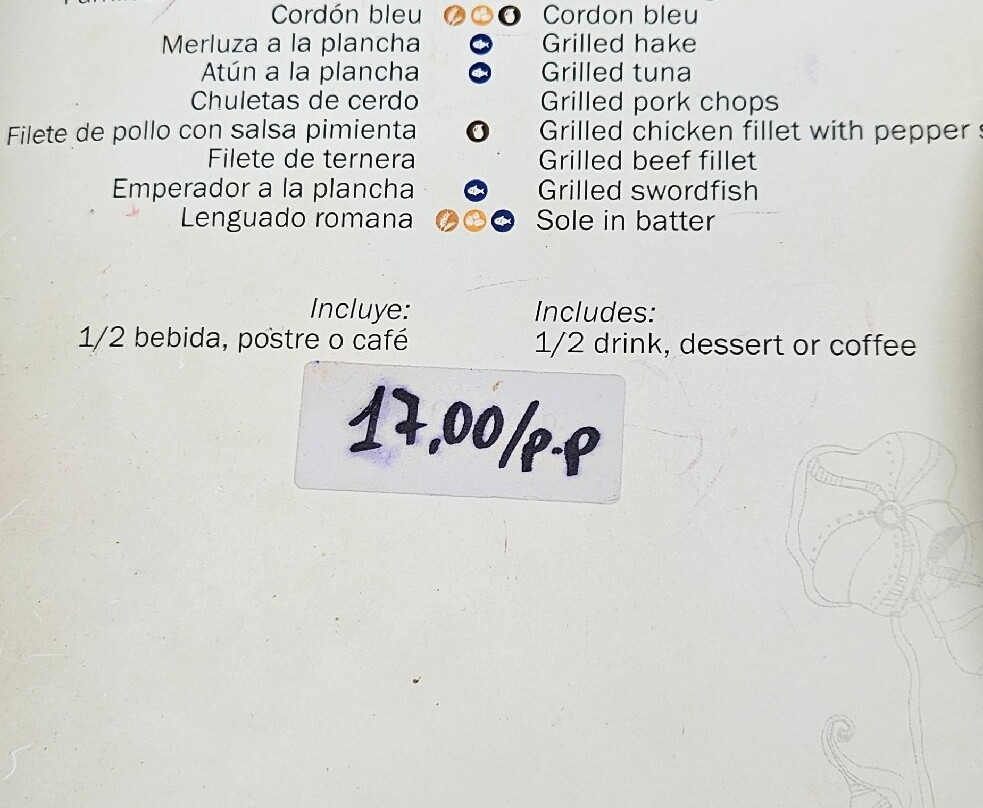 Cordón bleu Cordon bleu
Merluza a la plancha Grilled hake
Atún a la plancha Grilled tuna
Chuletas de cerdo Grilled pork chops
Filete de pollo con salsa pimienta Grilled chicken fillet with pepper
Filete de ternera Grilled beef fillet
Emperador a la plancha Grilled swordfish
Lenguado romana Sole in batter
Incluye: Includes:
1/2 bebida, postre o café 1/2 drink, dessert or coffee
17,00/p.p